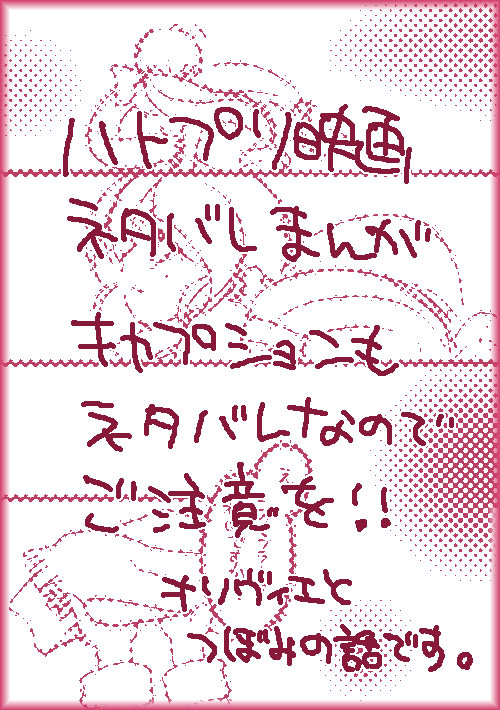 ハトプリ映画
ネタバレまんが
キャプションも
ネタバレなので
ご注意を!!
オリヴィエと
つぼみの話です。